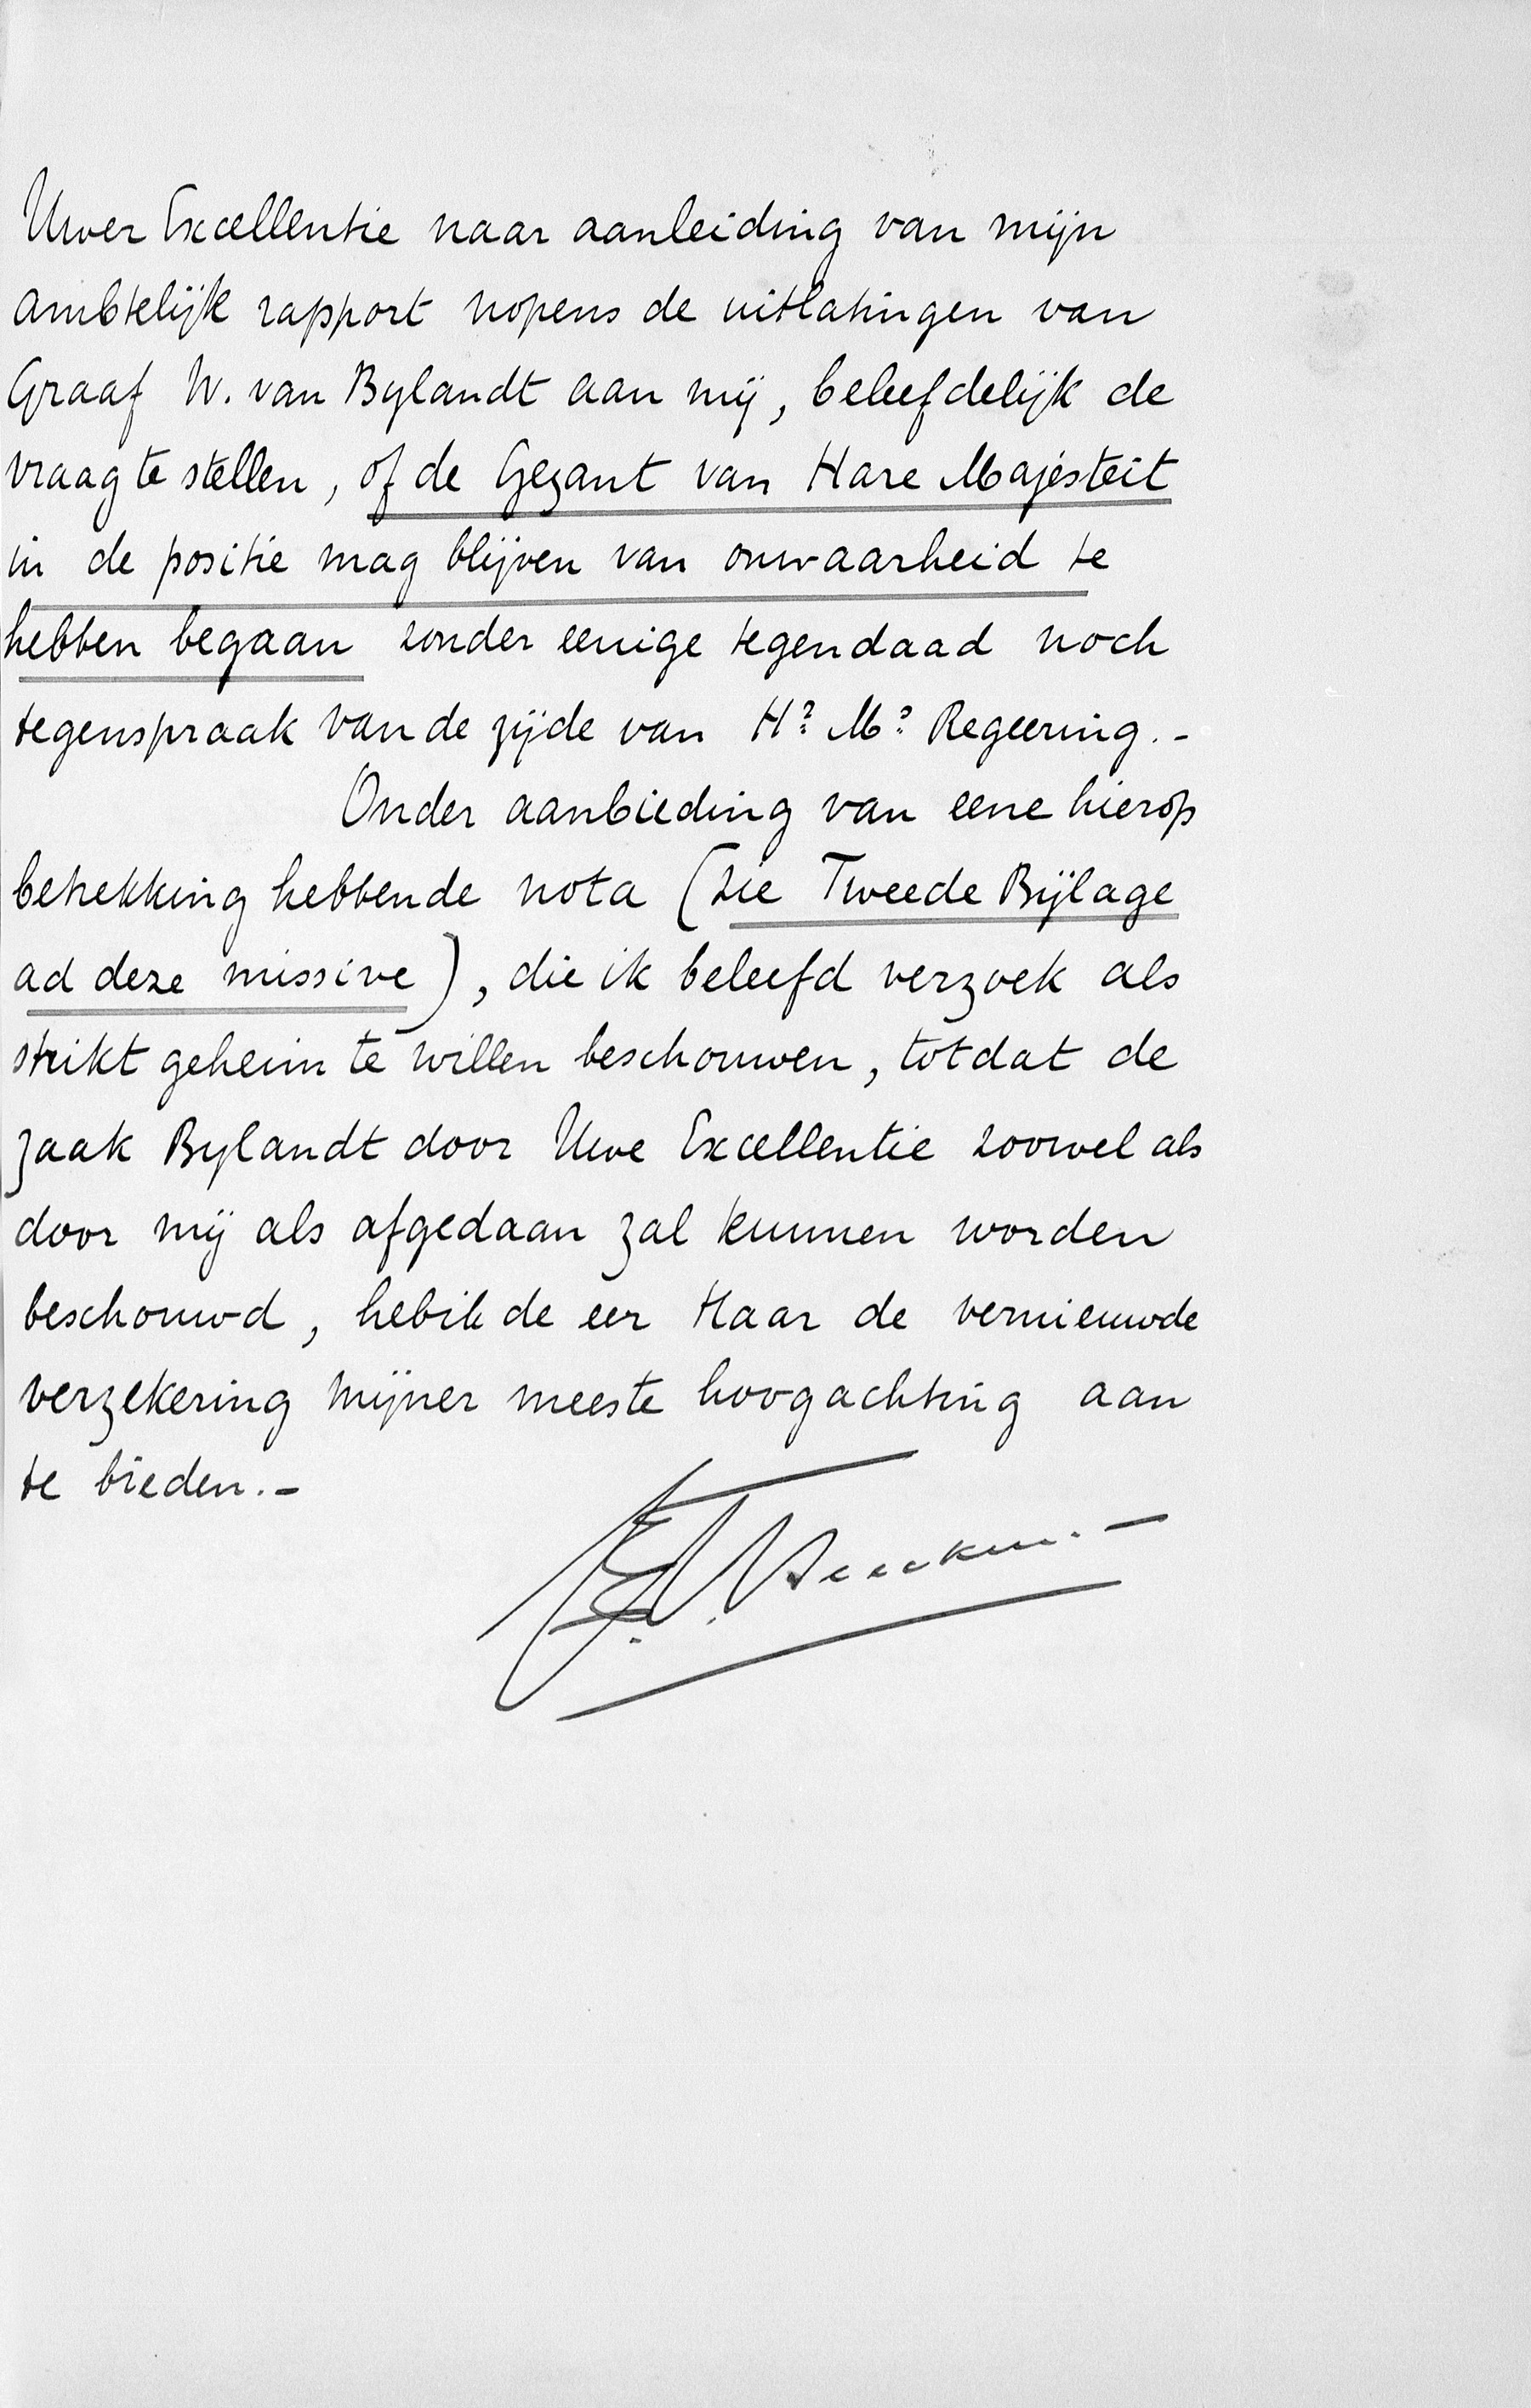 Uwer Excellentie naar aanleiding van mijn
ambtelijk rapport nopens de uitlatingen van
Graaf W. van Bylandt aan mij, beleefdelijk de
vraag te stellen, of de Gezant van Hare Majesteit
in de positie mag blijven van onwaarheid te
hebben begaan zonder eenige tegendaad noch
tegenspraak van de zijde van Hr Mr Regeering.-
Onder aanbieding van eene hierop
betrekking hebbende nota (zie Tweede Bijlage
ad deze missive), die ik beleefd verzoek als
strikt geheim te willen beschouwen, totdat de
zaak Bylandt door Uwe Excellentie zoowel als
door mij als afgedaan zal kunnen worden
beschouwd, heb ik de eer Haar de vernieuwde
verzekering mijner meeste hoogachting aan
te bieden.-